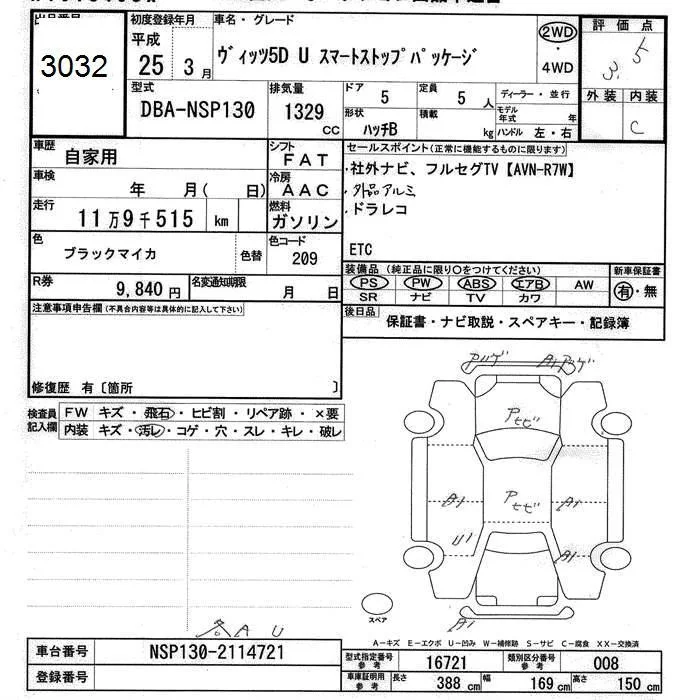 出品番号
3032
初度登録年月
平成
25 3月
車名・グレード
ヴィッツ5D U スマートストップパッケージ
2WD
・
4WD
評価点
3.5
外装 内装
C
型式
DBA-NSP130
排気量
1329
CC
ドア 5
定員 5 人
ディーラー・並行
形状 ハッチB
積載 kg
モデル年式 年
ハンドル 左・右
車歴 自家用
シフト FAT
車検 年 月( 日)
冷房 AAC
走行 11万9千515 km
燃料 ガソリン
色 ブラックマイカ
色替
色コード 209
R券 9,840円
名変通知期限 月 日
セールスポイント(正常に機能するものに限ります)
・社外ナビ、フルセグTV【AVN-R7W】
・外品アルミ
・ドラレコ
ETC
装備品(純正品に限り○をつけてください)
新車保証書
PS PW ABS エアB AW
有・無
SR ナビ TV カワ
後日品 保証書・ナビ取説・スペアキー・記録簿
注意事項申告欄(不具合内容等は具体的に記入して下さい)
修復歴 有〔箇所 〕
検査員記入欄
FW キズ・飛石・ヒビ割・リペア跡・×要
内装 キズ・汚レ・コゲ・穴・スレ・キレ・破レ
A1
A1
A1
U1
A1
A1
スペア
A U
A-キズ E-エクボ U-凹み W-補修跡 S-サビ C-腐食 XX-交換済
車台番号 NSP130-2114721
登録番号
型式指定番号 参考 16721
類別区分番号 参考 008
車庫証明用 参考 長さ 388 cm 幅 169 cm 高さ 150 cm